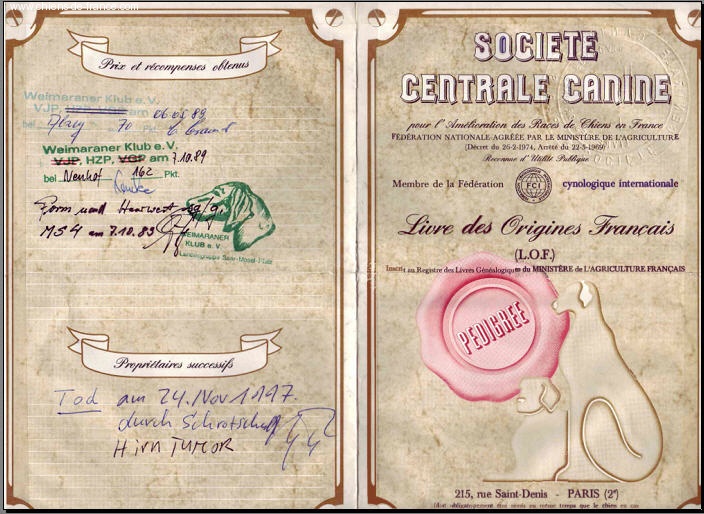 www.chiens-de-france.com
Prix et récompenses obtenus
Weimaraner Klub e.V.
VJP, HZP, VGP am 06.05.89
bei Alzey 70 Pkt.
Weimaraner Klub e.V.
VJP, HZP, VGP am 7.10.89
bei Neuhof 162 Pkt.
Form und Haarwert sg/g.
MS4 am 7.10.89
WEIMARANER
KLUB e. V.
Landesgruppe Saar-Mosel-Pfalz
Propriétaires successifs
Tod am 24. Nov 1997.
durch Schrotschuß
Hirn TUMOR
SOCIETE
CENTRALE CANINE
pour l'Amélioration des Races de Chiens en France
FÉDÉRATION NATIONALE AGRÉÉE PAR LE MINISTÈRE DE L'AGRICULTURE
(Décret du 26-2-1974, Arrêté du 22-5-1969)
Reconnue d'Utilité Publique
Membre de la Fédération FCI cynologique internationale
Livre des Origines Français
(L.O.F.)
Inscrit au Registre des Livres Généalogiques du MINISTÈRE de L'AGRICULTURE FRANÇAIS
PEDIGREE
215, rue Saint-Denis - PARIS (2e)